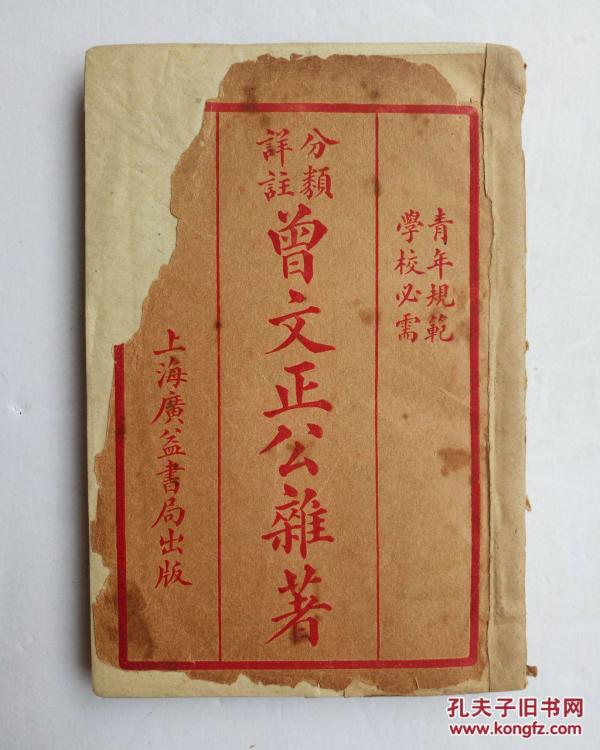 青年規範
學校必需
分類
詳註
曾文正公雜著
上海廣益書局出版
孔夫子旧书网
www.kongfz.com